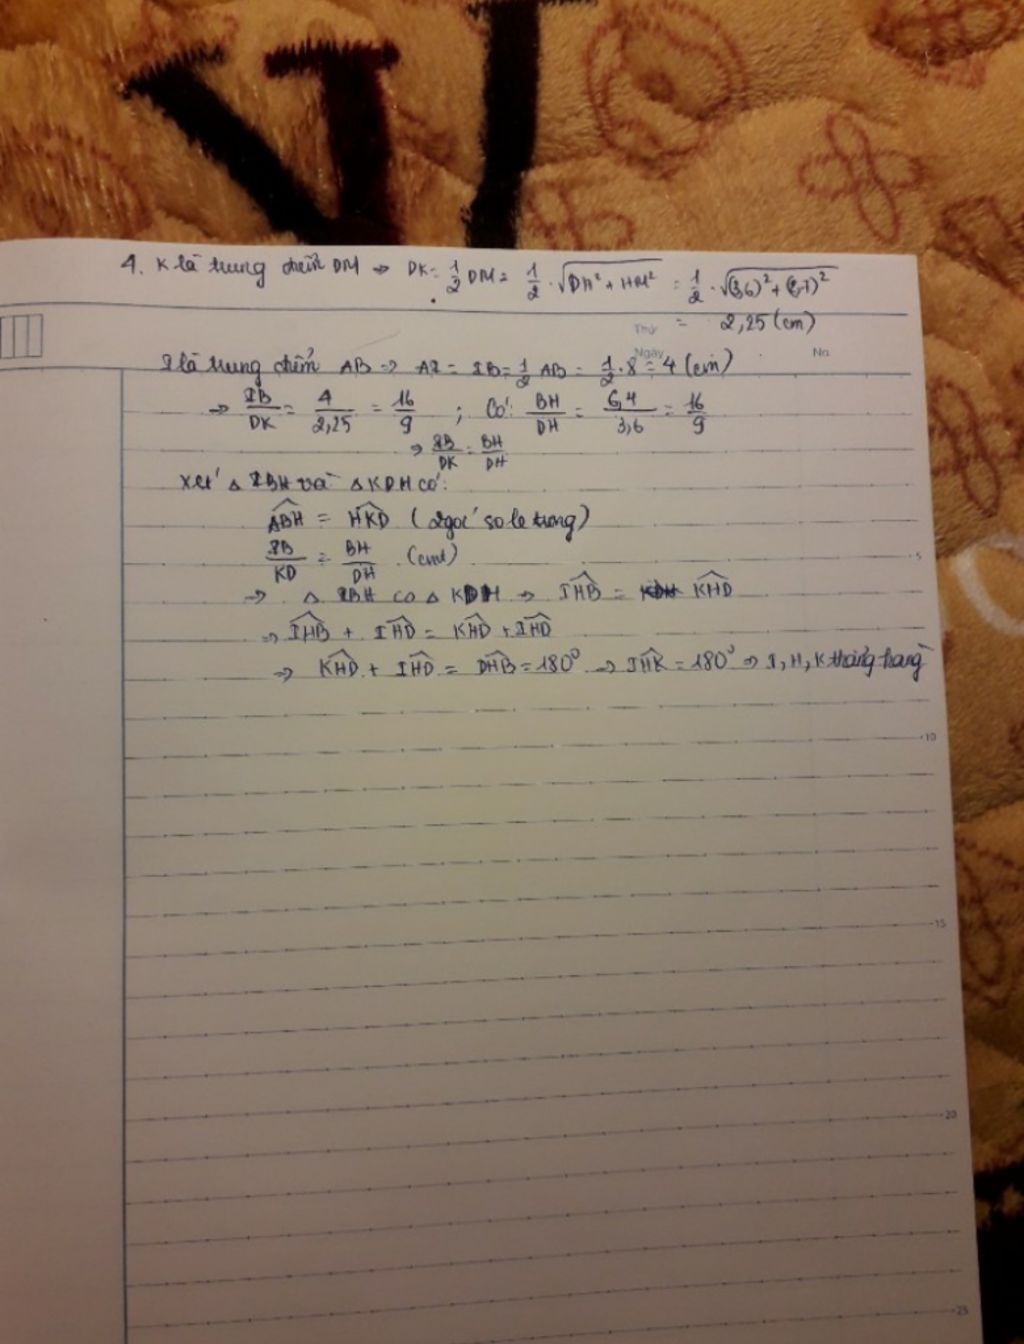 4. K là trung điểm DM ⇒ DK = 1/2 DM = 1/2 . √(DH² + HM²) = 1/2 . √((3,6)² + (2,7)²)
Thứ = 2,25 (cm)
Ngày No
I là trung điểm AB ⇒ AI = IB = 1/2 AB = 1/2 . 8 = 4 (cm)
⇒ IB/DK = 4/2,25 = 16/9 ; Có: BH/DH = 6,4/3,6 = 16/9
⇒ IB/DK = BH/DH
Xét △ IBH và △ KDH có:
ABH = HKD (2 góc so le trong)
IB/KD = BH/DH (cmt)
⇒ △ IBH co △ KDH ⇒ IHB = KHD
⇒ IHB + IHD = KHD + IHD
⇒ KHD + IHD = DHB = 180° ⇒ IHK = 180° ⇒ I, H, K thẳng hàng
5
10
15
20
25